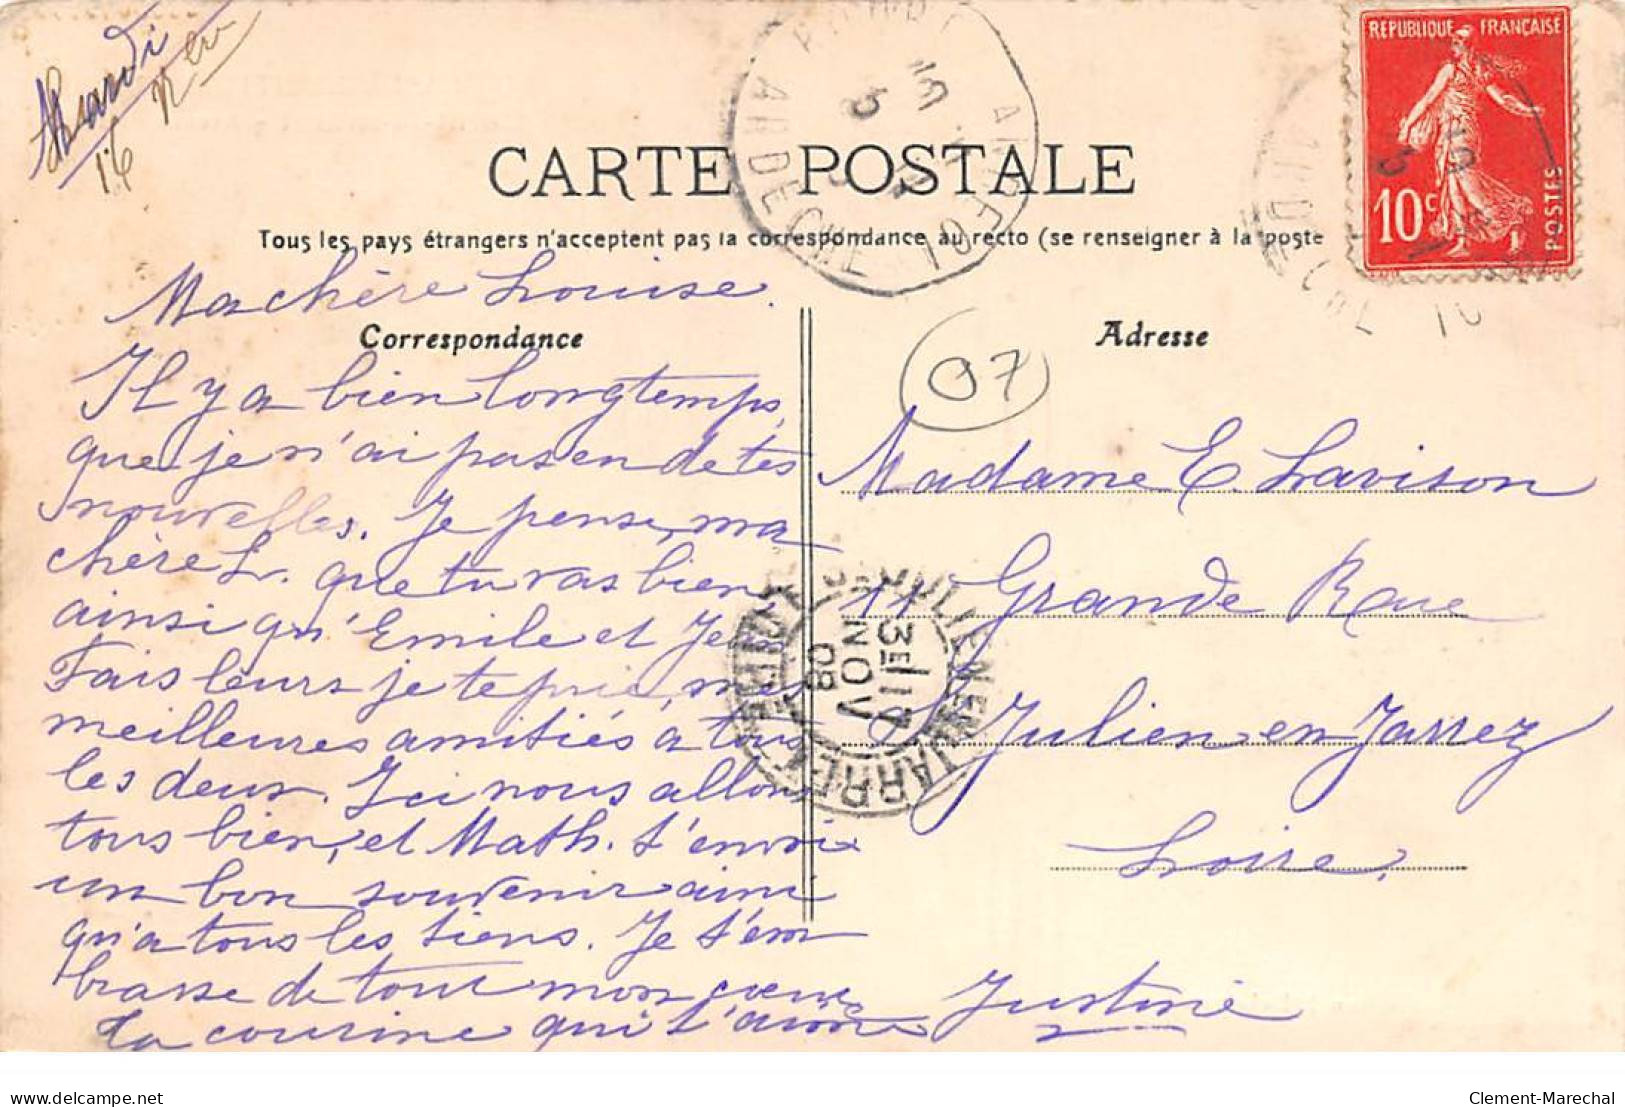 Mardi
16
CARTE POSTALE
Tous les pays étrangers n'acceptent pas la correspondance au recto (se renseigner à la poste
REPUBLIQUE FRANÇAISE
10c
POSTES
ARDECHE
Ma chère Louise.
Correspondance
Il y a bien longtemps,
que je n'ai pas en de tes
nouvelles. Je pense, ma
chère L. que tu vas bien
ainsi qu'Emile et Jean
Fais leurs je te prie, mes
meilleures amitiés à tous
les deux. Ici nous allons
tous bien, et Math. t'envoie
un bon souvenir ainsi
qu'a tous les tiens. Je t'em
brasse de tout mon coeur
Ta cousine qui t'aime Justine
Adresse
07
Madame E. Lavison
11 Grande Rue
St Julien-en-Jarrez
Loire.
ST JULIEN EN JARREZ
3E 17
NOV
08
delcampe.net
Clement-Marechal